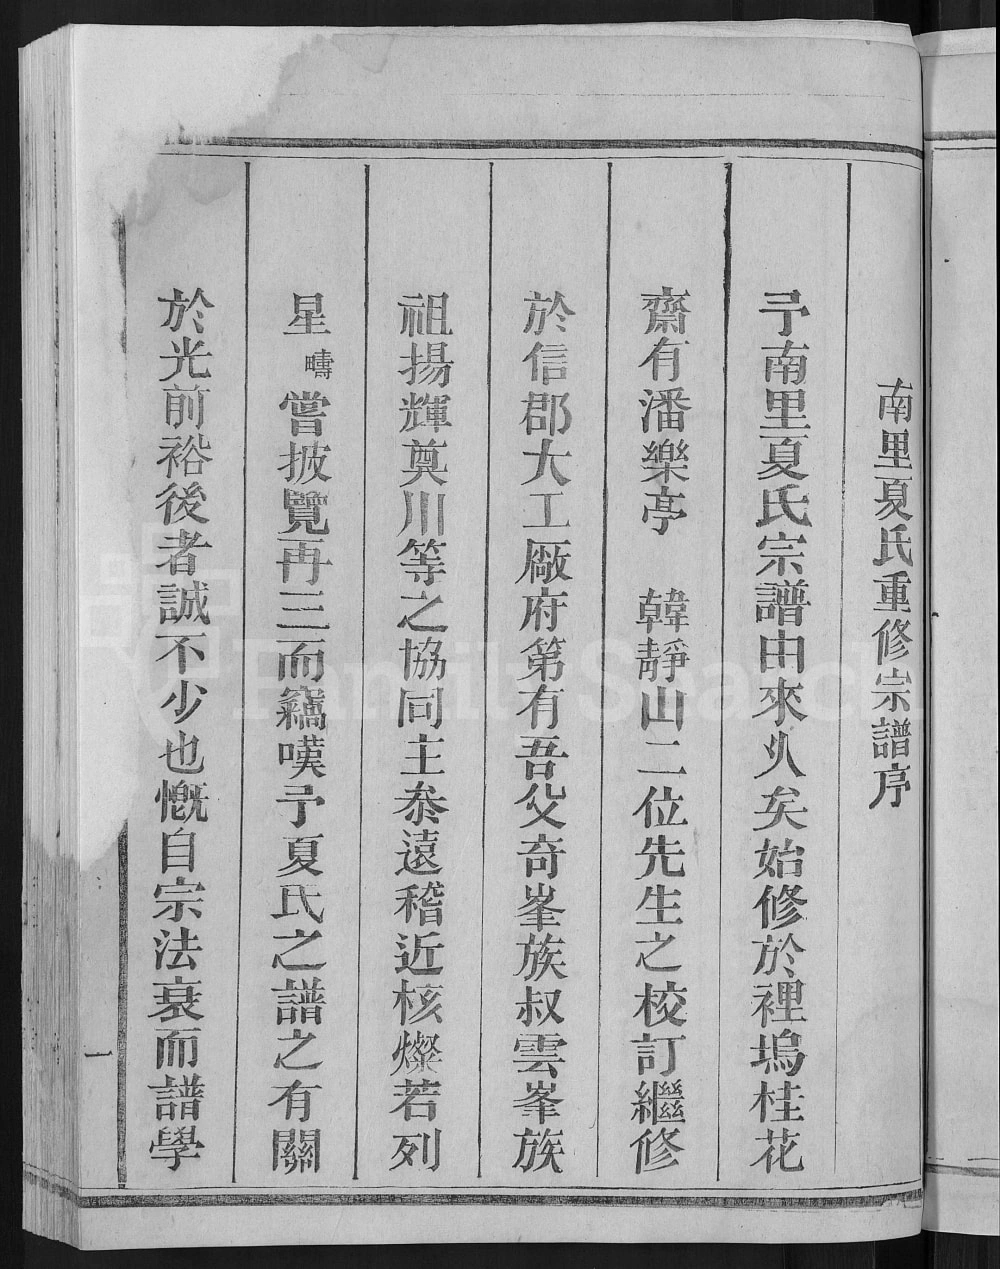 南里夏氏重修宗譜序
予南里夏氏宗譜由來久矣始修於裡塢桂花
齋有潘樂亭　韓靜山二位先生之校訂繼修
於信郡大工廠府第有吾父奇峯族叔雲峯族
祖揚輝奠川等之協同主叅遠稽近核燦若列
星疇嘗披覽再三而竊嘆予夏氏之譜之有關
於光前裕後者誠不少也慨自宗法衰而譜學
一
FamilySearch